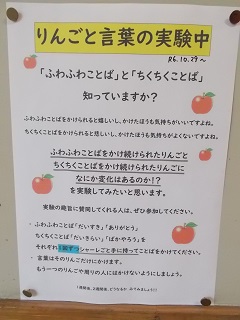 りんごと言葉の実験中
R6.10.29～
「ふわふわことば」と「ちくちくことば」
知っていますか？
ふわふわことばをかけられると嬉しいし、かけたほうも気持ちがいいですよね。
ちくちくことばをかけられると悲しいし、かけたほうも気持ちがよくないですよね。
ふわふわことばをかけ続けられたりんごと
ちくちくことばをかけ続けられたりんごに
なにか変化はあるのか！？
を実験してみたいと思います。
実験の趣旨に賛同してくれる人は、ぜひ参加してください。
・ふわふわことば「だいすき」「ありがとう」
ちくちくことば「だいきらい」「ばかやろう」を
それぞれ1回ずつシャーレごと手に持ってことばをかけてください。
・言葉はそのりんごだけにかけます。
もう一つのりんごや周りの人にはかけないようにしましょう。
1週間後、2週間後、どうなるか